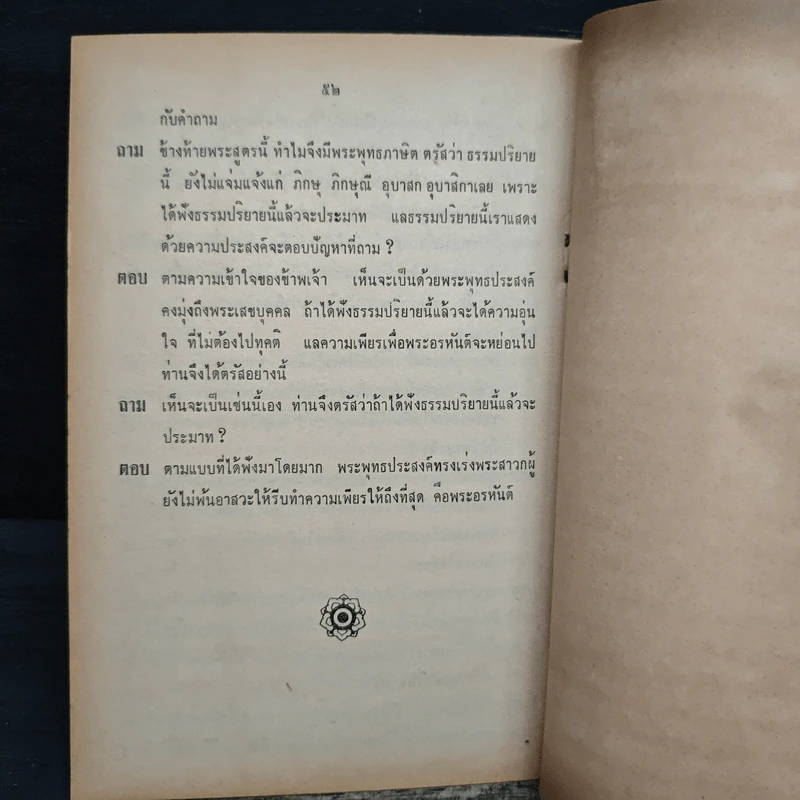 ๕๒
กับคำถาม
ถาม ข้างท้ายพระสูตรนี้ ทำไมจึงมีพระพุทธภาษิต ตรัสว่า ธรรมปริยาย
นี้ ยังไม่แจ่มแจ้งแก่ ภิกษุ ภิกษุณี อุบาสก อุบาสิกาเลย เพราะ
ได้ฟังธรรมปริยายนี้แล้วจะประมาท แลธรรมปริยายนี้เราแสดง
ด้วยความประสงค์จะตอบปัญหาที่ถาม ?
ตอบ ตามความเข้าใจของข้าพเจ้า เห็นจะเป็นด้วยพระพุทธประสงค์
คงมุ่งถึงพระเสขบุคคล ถ้าได้ฟังธรรมปริยายนี้แล้วจะได้ความอุ่น
ใจ ที่ไม่ต้องไปทุคติ แลความเพียรเพื่อพระอรหันต์จะหย่อนไป
ท่านจึงได้ตรัสอย่างนี้
ถาม เห็นจะเป็นเช่นนี้เอง ท่านจึงตรัสว่าถ้าได้ฟังธรรมปริยายนี้แล้วจะ
ประมาท ?
ตอบ ตามแบบที่ได้ฟังมาโดยมาก พระพุทธประสงค์ทรงเร่งพระสาวกผู้
ยังไม่พ้นอาสวะให้รีบทำความเพียรให้ถึงที่สุด คือพระอรหันต์